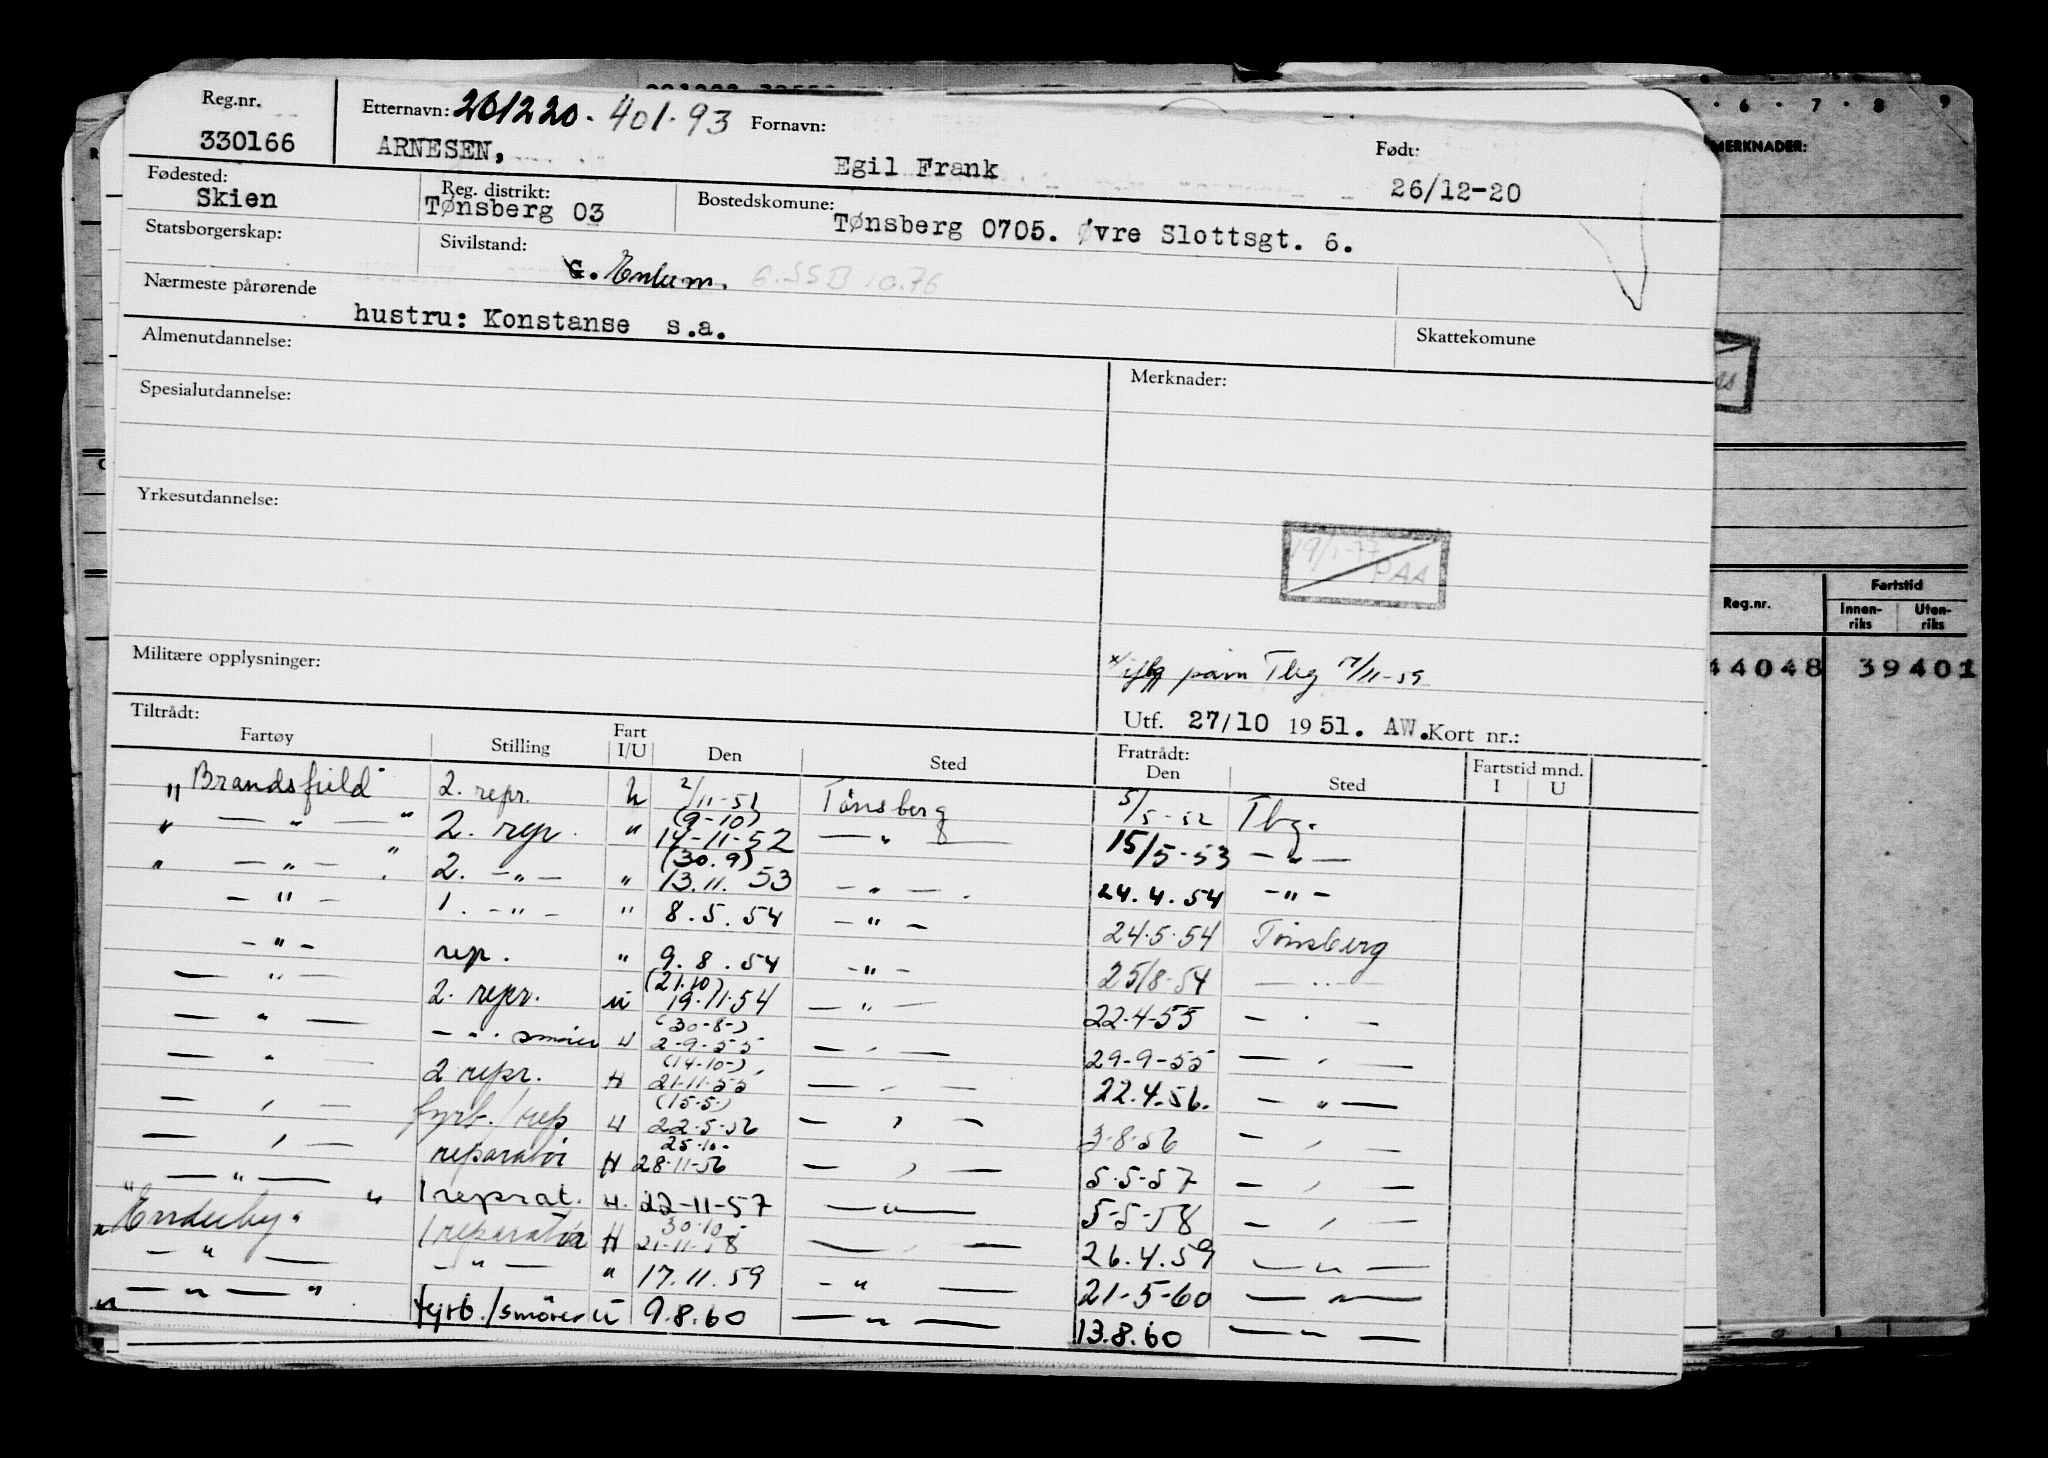 Reg.nr. Etternavn: 261220. 401.93 Fornavn: Født:
330166 ARNESEN, Egil Frank 26/12-20
Fødested: Reg. distrikt: Bostedskomune:
Skien Tønsberg 03 Tønsberg 0705. Øvre Slottsgt. 6.
Statsborgerskap: Sivilstand:
G. Enkem. 6.SSB 10.76
Nærmeste pårørende
hustru: Konstanse s.a. Skattekomune
Almenutdannelse: Merknader:
Spesialutdannelse:
Yrkesutdannelse:
19/1-77
PAA
Militære opplysninger:
Tbg 17/11-59
Utf. 27/10 1951. AW. Kort nr.:
Tiltrådt: Fratrådt:
Fartøy Stilling Fart I/U Den Sted Den Sted Fartstid mnd. I U
"Brandsfield" 2. repr. h 2/11-51 Tönsberg 5/5-52 Tbg.
" — " — " 2. rep. " (9-10) 14-11-52 — " — 15/5-53 — " —
" — " — " 2. — " — " (30.9) 13.11.53 — " — 24.4.54 — " —
— " — 1. — " — " 8.5.54 — " — 24.5.54 Tönsberg
— " — rep. " 9.8.54 — " — 25/8-54 — " —
— " — 2. repr. u (21.10) 19.11.54 — " — 22.4-55 — " —
— " — — " — smører H (30-8-) 2-9-55 — " — 29-9-55 — " —
— " — 2 repr. H (14-10-) 21-11-55 — " — 22.4.56. — " —
— " — fyrb./rep H (15-5-) 22-5-56 — " — 3-8-56 — " —
— " — reparatör H 25-10- 28-11-56 — " — 5-5-57 — " —
— " — 1 reprat. H. 22-11-57 — " — 5-5-58 — " —
"Enderby" 1 reparatör H 30-10- 21-11-58 — " — 26.4.59 — " —
— " — — " — " 17.11.59 — " — 21-5-60 — " —
" — " — " fyrb./smörer u 9.8.60 — " — 13.8.60 — " —
6 · 7 · 8 · 9
MERKNADER:
Reg.nr. Fartstid
Innen-riks Uten-riks
44048 39401